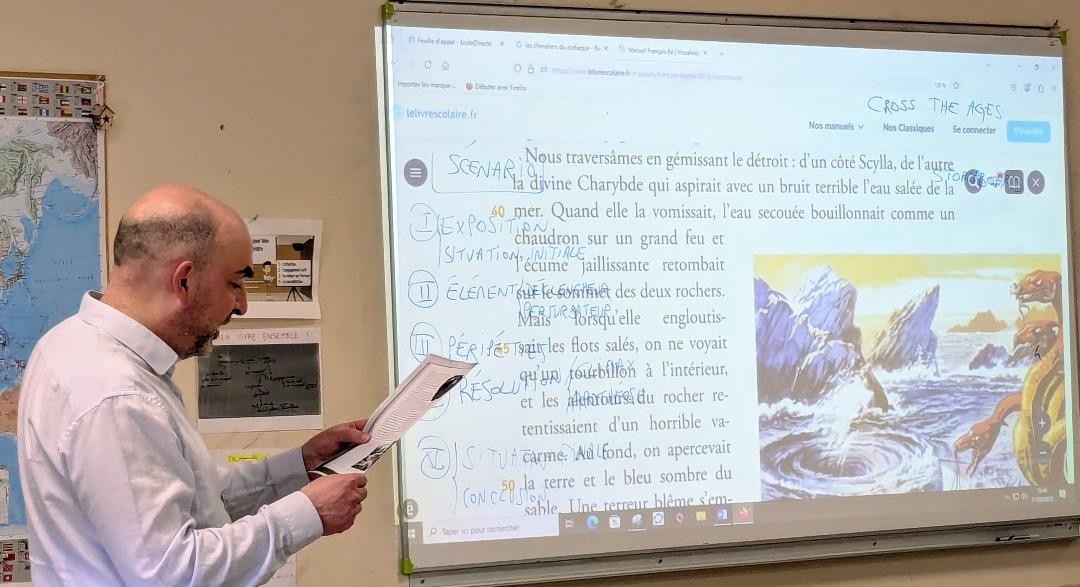 Feuille d'appel - EcoleDirecte
les chevaliers du zodiaque - Re
Manuel Français 6e | Visualiseu
Importer les marque-...
Débuter avec Firefox
lelivrescolaire.fr
CROSS THE AGES
Nos manuels
Nos Classiques
Se connecter
S'inscrire
SCÉNARIO
Nous traversâmes en gémissant le détroit : d'un côté Scylla, de l'autre
la divine Charybde qui aspirait avec un bruit terrible l'eau salée de la
40 mer. Quand elle la vomissait, l'eau secouée bouillonnait comme un
chaudron sur un grand feu et
l'écume jaillissante retombait
sur le sommet des deux rochers.
Mais lorsqu'elle engloutis-
45 sait les flots salés, on ne voyait
qu'un tourbillon à l'intérieur,
et les alentours du rocher re-
tentissaient d'un horrible va-
carme. Au fond, on apercevait
50 la terre et le bleu sombre du
sable. Une terreur blême s'em-
I EXPOSITION
SITUATION INITIALE
II ÉLÉMENT DÉCLENCHEUR
PERTURBATEUR
III PÉRIPÉTIES
RÉSOLUTION / CLIMAX
SITUATION FINALE
CONCLUSION
Taper ici pour rechercher
VIVRE ENSEMBLE !